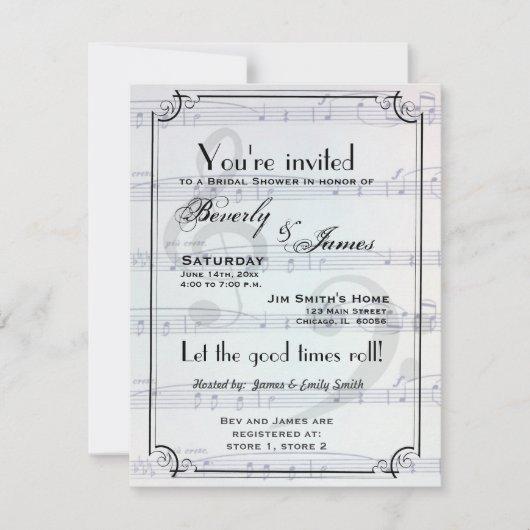 You're invited
to a Bridal Shower in honor of
Beverly
& James
Saturday
June 14th, 20xx
4:00 to 7:00 p.m.
Jim Smith's Home
123 Main Street
Chicago, IL 60056
Let the good times roll!
Hosted by: James & Emily Smith
Bev and James are
registered at:
store 1, store 2